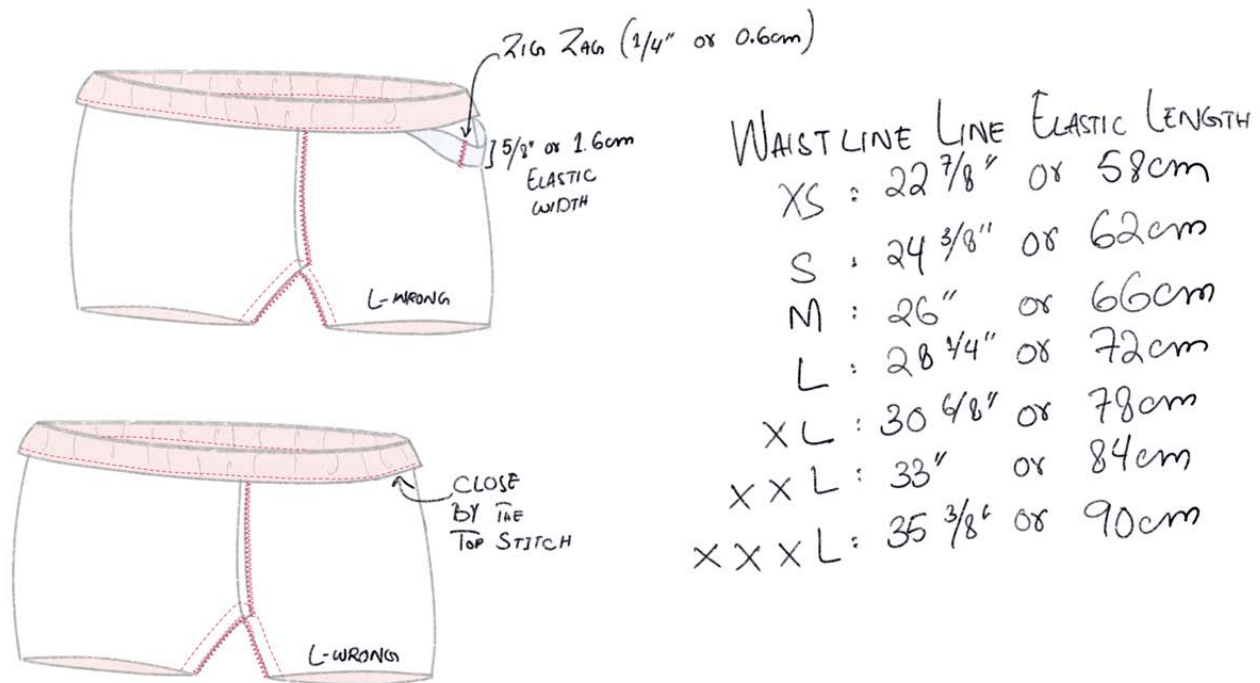 ZIG ZAG (1/4" or 0.6cm)
5/8" or 1.6cm
ELASTIC
WIDTH
L-WRONG
CLOSE
BY THE
TOP STITCH
L-WRONG
WAISTLINE LINE ELASTIC LENGTH
XS : 22 7/8" or 58cm
S : 24 3/8" or 62cm
M : 26" or 66cm
L : 28 1/4" or 72cm
XL : 30 6/8" or 78cm
XXL : 33" or 84cm
XXXL : 35 3/8" or 90cm